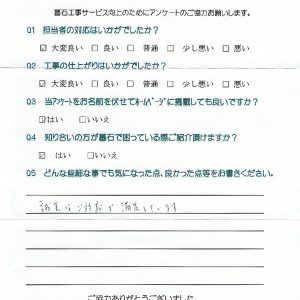 墓石工事サービス向上のためにアンケートのご協力お願いします。
Q1 担当者の対応はいかがでしたか?
☑ 大変良い □ 良い □ 普通 □ 少し悪い □ 悪い
Q2 工事の仕上がりはいかがでしたか?
☑ 大変良い □ 良い □ 普通 □ 少し悪い □ 悪い
Q3 当アンケートをお名前を伏せてホームページに掲載しても良いですか?
☑はい □いいえ
Q4 知り合いの方が墓石で困っている際ご紹介頂けますか?
☑ はい □いいえ
Q5 どんな些細な事でも気になった点、良かった点等をお書きください。
誠実なご対応で満足しています
ご協力ありがとうございました。